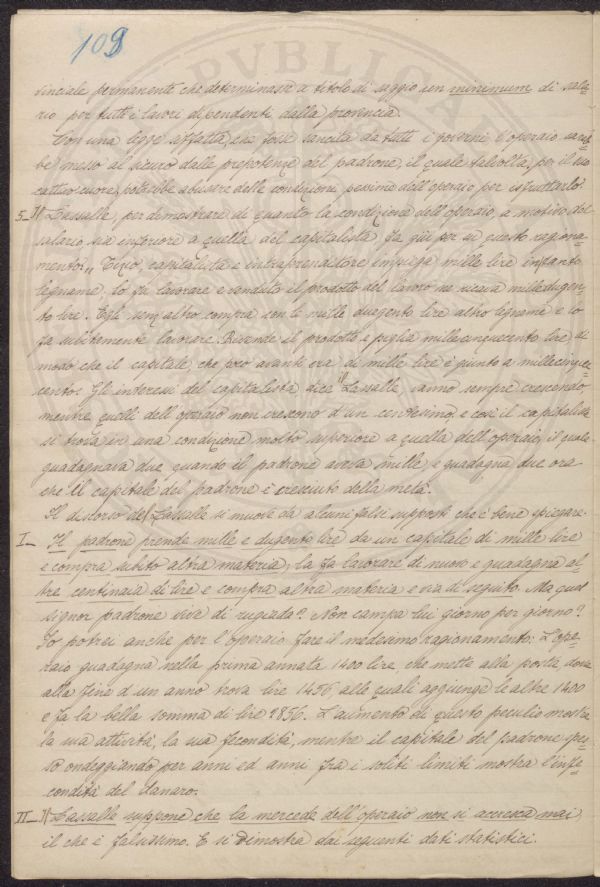 109
vinciale permanente che determinasse a titolo di saggio un minimum di sala-
rio per tutti i lavori dipendenti dalla provincia.
Con una legge siffatta, che fosse sancita da tutti i governi l'operaio sareb-
be messo al sicuro dalle prepotenze del padrone, il quale talvolta, per il suo
cattivo cuore, potrebbe abusare della condizione pessima dell'operaio per isfruttarlo.
5_ Il Lassalle, per dimostrare di quanto la condizione dell'operaio, a motivo del
salario sia inferiore a quella del capitalista, fa qui per sè questo ragiona-
mento: „ Tizio, capitalista e intraprenditore impiega mille lire in tanto
legname, lo fa lavorare e venduto il prodotto del lavoro ne ricava milleducen-
to lire. Egli senz'altro compra con le mille duecento lire altro legname e lo
fa subitamente lavorare. Rivende il prodotto e piglia millecinquecento lire, di
modo che il capitale, che poco avanti era di mille lire è giunto a millecinque-
cento. Gli interessi del capitalista, dice il Lassalle, vanno sempre crescendo
mentre quelli dell'operaio non crescono d'un centesimo, e così il capitalista
si trova in una condizione molto superiore a quella dell'operaio, il quale
guadagnava due, quando il padrone aveva mille, e guadagna due ora
che il capitale del padrone è cresciuto della metà.
Il discorso del Lassalle si muove da alcuni falsi supposti che è bene spiegare.
I_ Il padrone prende mille e dugento lire da un capitale di mille lire
e compra subito altra materia, la fa lavorare di nuovo e guadagna al-
tre centinaia di lire e compra altra materia e via di seguito. Ma quel
signor padrone viva di rugiada? Non campa lui giorno per giorno?
Io potrei anche per l'operaio fare il medesimo ragionamento: L'ope-
raio guadagna nella prima annata 1400 lire, che mette alla posta, dove
alla fine d'un anno trova lire 1456, alle quali aggiunge le altre 1400
e fa la bella somma di lire 2856. L'aumento di questo peculio mostra
la sua attività, la sua fecondità, mentre il capitale del padrone spes-
so ondeggiando per anni ed anni fra i soliti limiti mostra l'infe-
condità del danaro.
II_ Il Lassalle suppone che la mercede dell'operaio non si accresca mai,
il che è falsissimo. E si dimostra dai seguenti dati statistici.